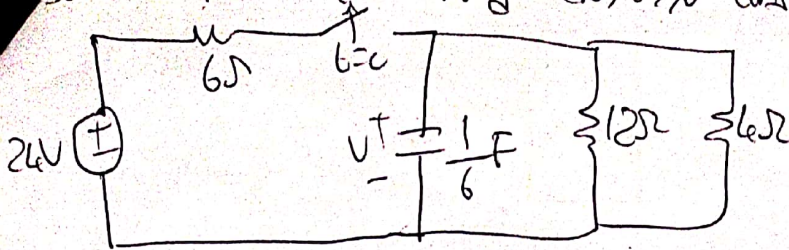 6Ω
t=0
24V
+
V
+
-
1/6 F
12Ω
4Ω